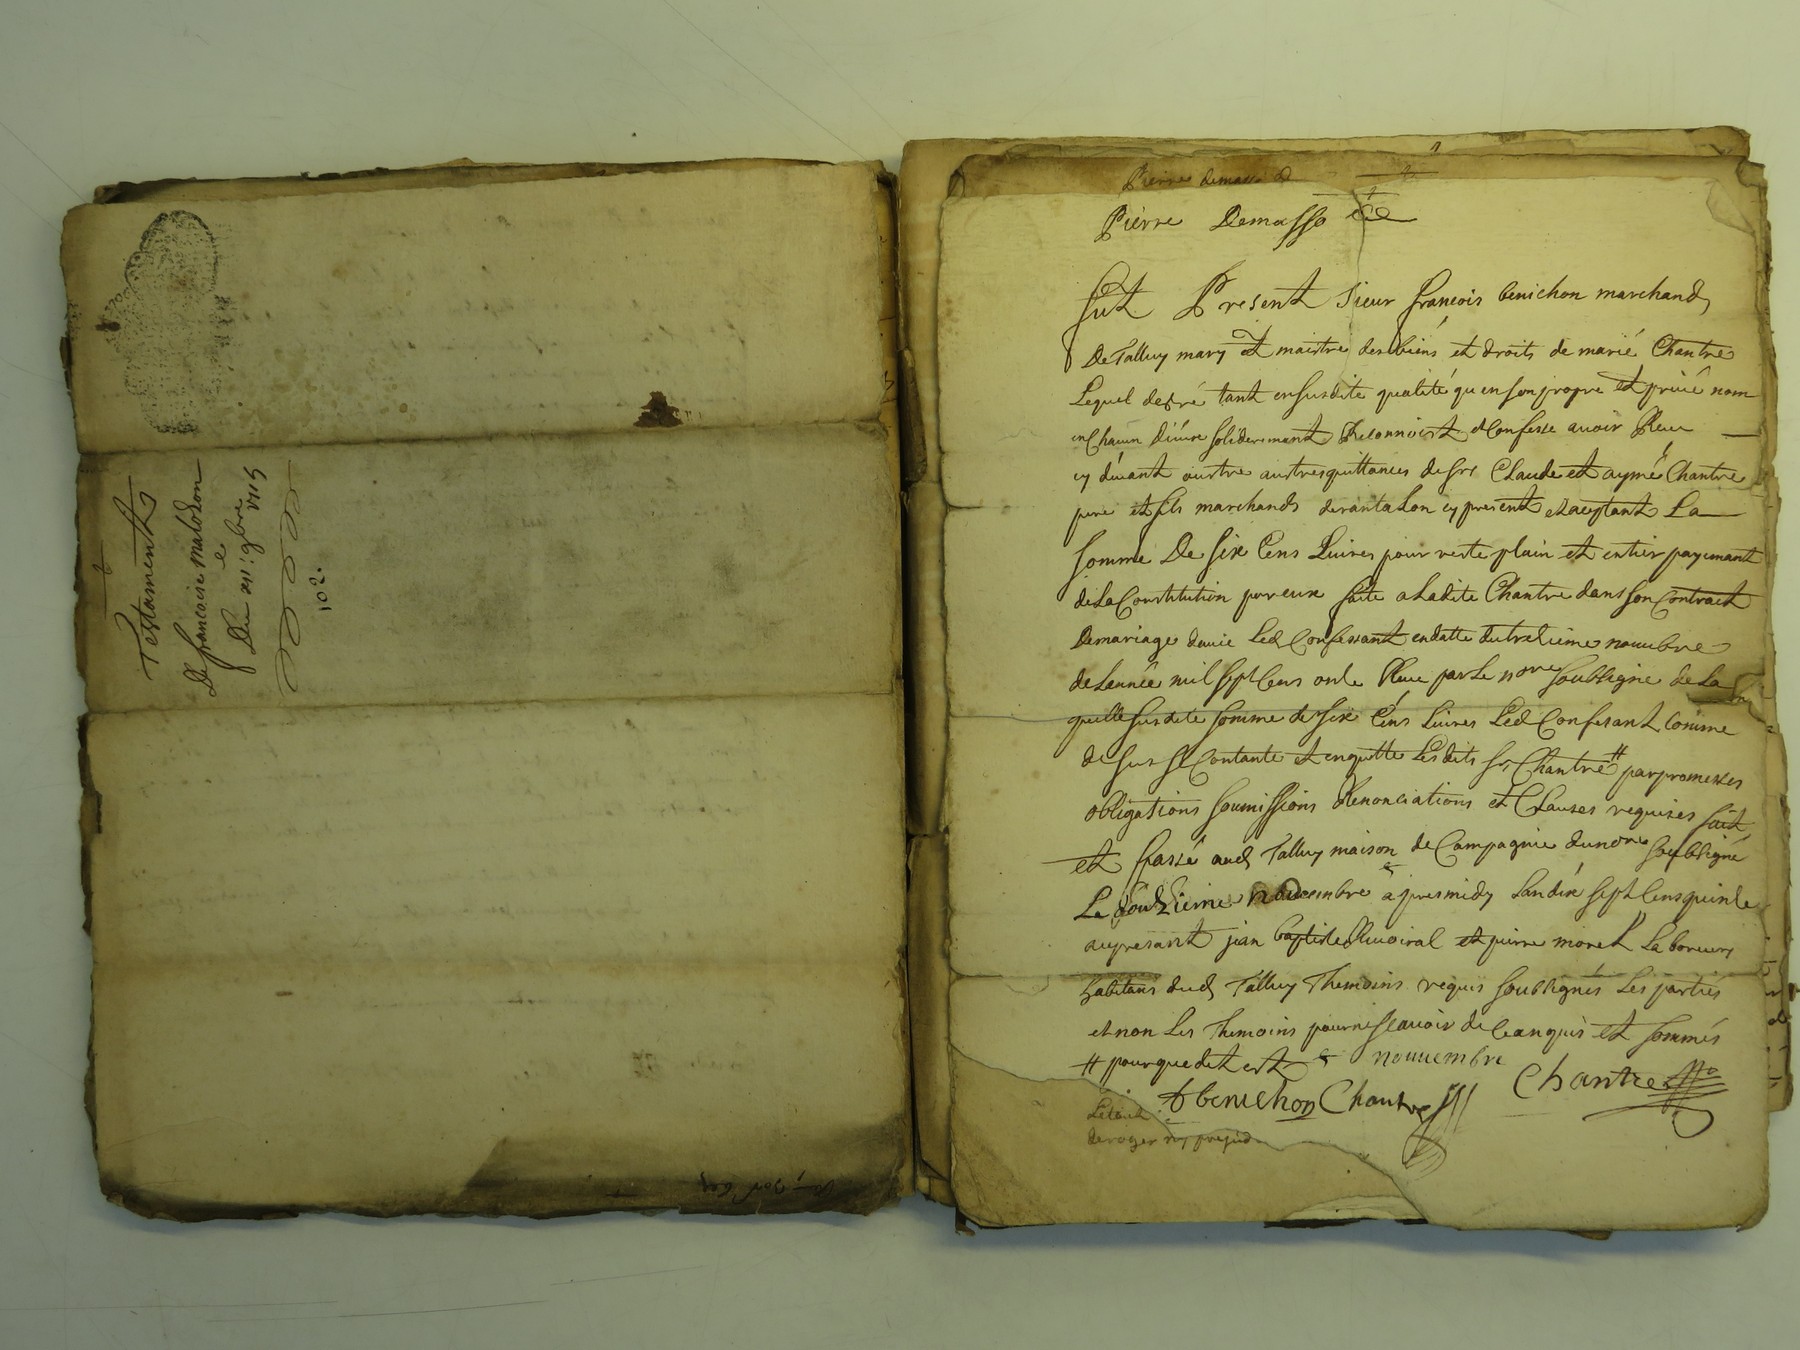 Testament
De francoise malozon
Du xii: 9bre 1715
102.
Pierre demasso
Pierre Demasso
fut Present sieur francois benichon marchand
De Talluy mary et maistre des biens et droits de marié Chantre
Lequel degré tant en susdite qualité qu en son propre et privé nom
un Chacun d'iceux soliderement Reconnoist et Confesse avoir Reu
cy devant outre autres quittances de srs Claude et aymé Chantre
pere et fils marchands de rantalon cy present et aceptant La
somme De six Cens Livres pour reste plain et entier payemant
de La Constitution par eux faite a Ladite Chantre dans son Contract
De mariage d'avec Led Confessant en datte du trezieme novembre
de L'année mil sept Cens onze Reçu par Le nore soubsigné de La
quelle susdite somme de six Cens Livres Led Confesant Comme
desus se Contante et en quitte Les dits srs Chantre # par promesses
obligations soumissions Renonciations et Clauses requises fait
et passé aud Talluy maison de Campagnie du nore soubsigné
Le douzieme novembre apres midy L'an dix sept Cens quinze
au presant jean baptiste Ruoiral et pierre moret Laboureurs
habitans dud Talluy Themoins requis soubsignés Les parties
et non Les Themoins pour ne scavoir de Ce anquis et sommés
# pour que dit est nouvembre
f benichon Chantre Chantre
deroger ny prejud